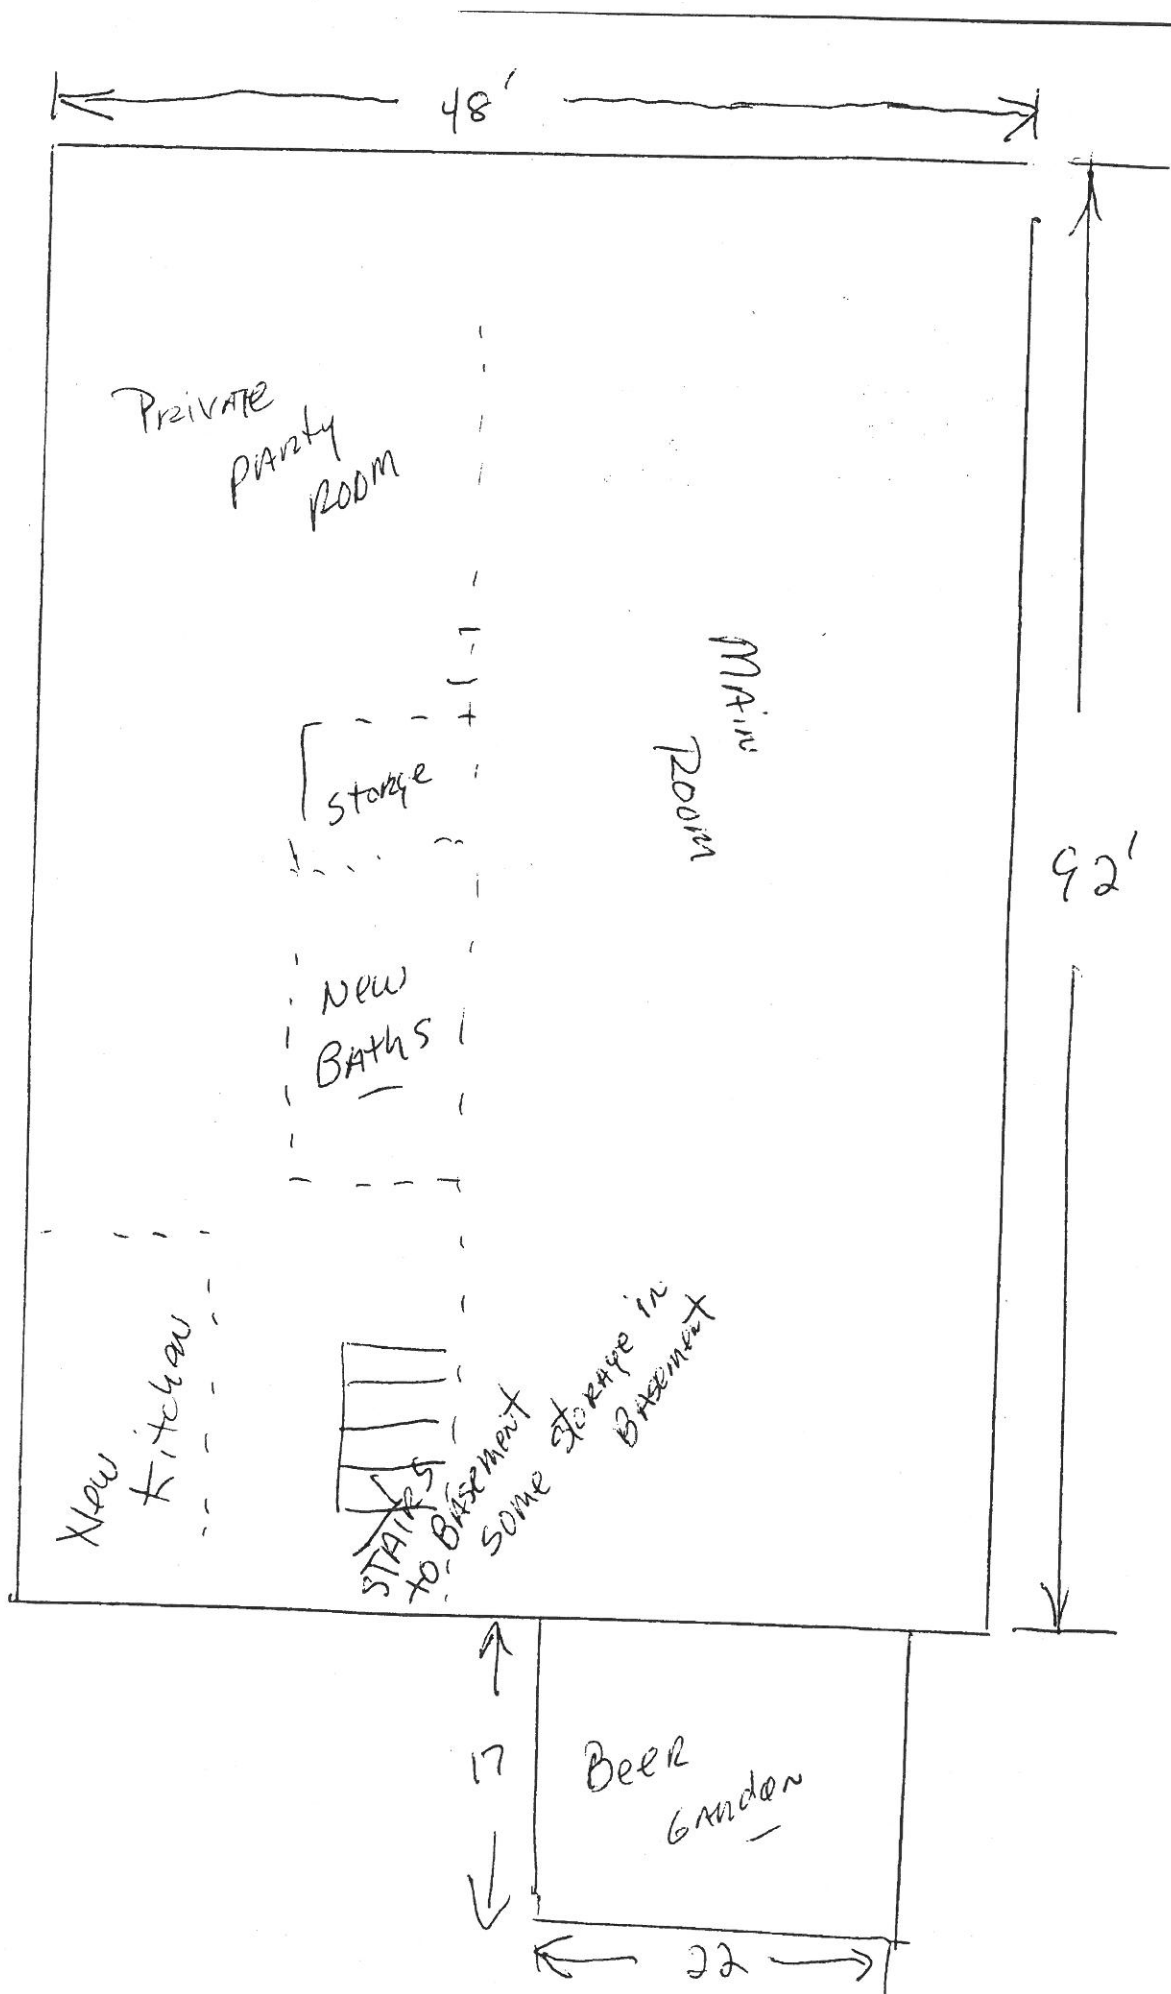 48'
Private
Party
Room
Main
Room
Storge
92'
New
Baths
New
Kitchen
Stairs
to Basement
Some Storage in
Basement
17
Beer
Garden
22